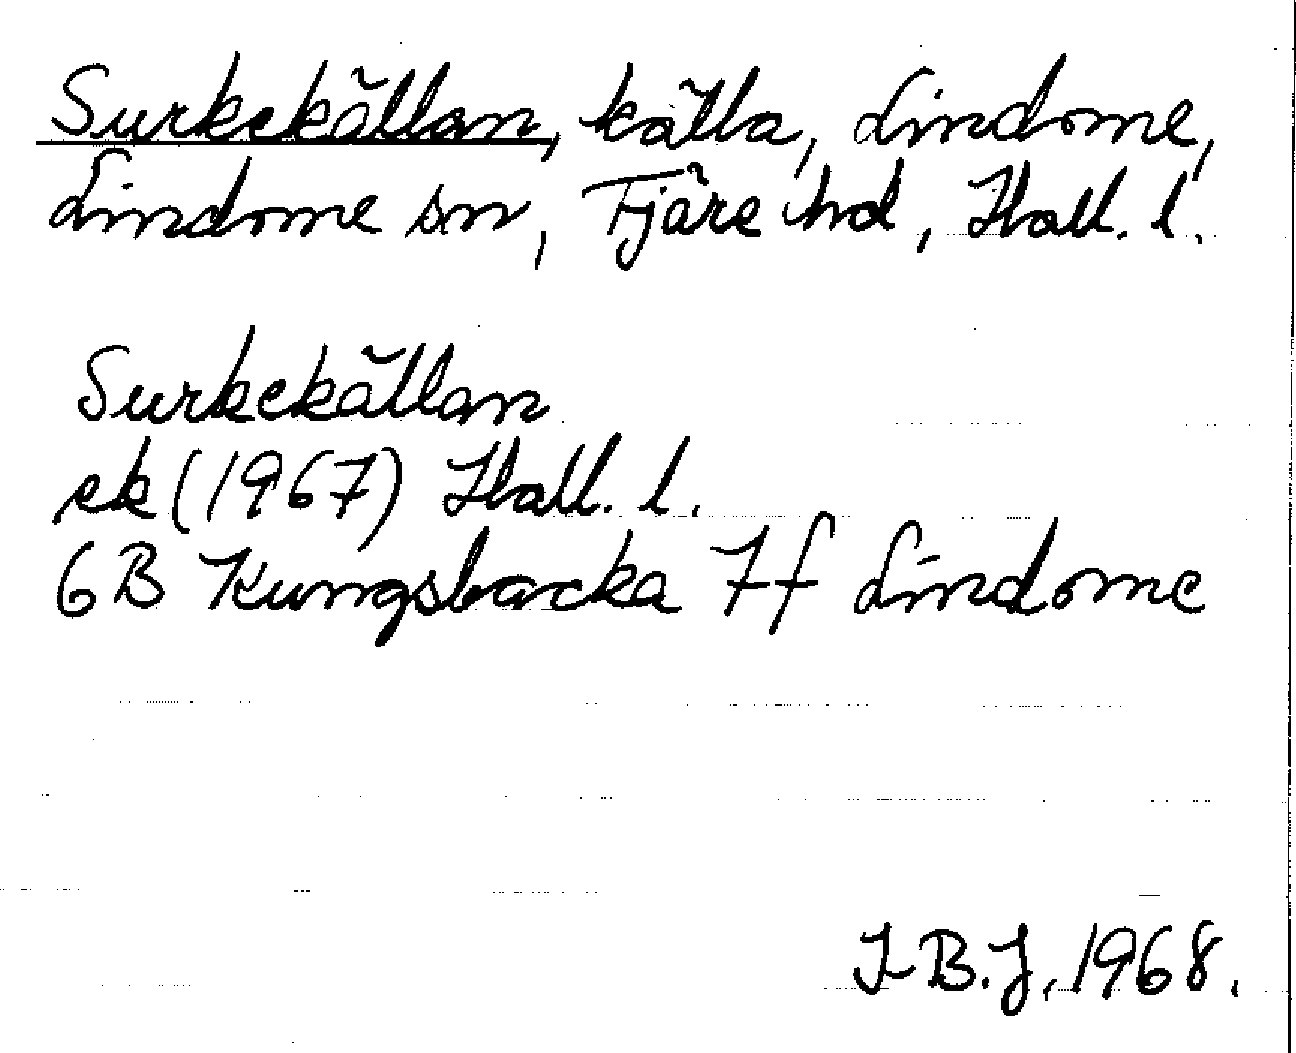 Surkekällan, källa, Lindome,
Lindome sn, Fjäre hd, Hall. l.
Surkekällan
ek (1967) Hall. l.
6B Kungsbacka 7f Lindome
I-B.J. 1968.